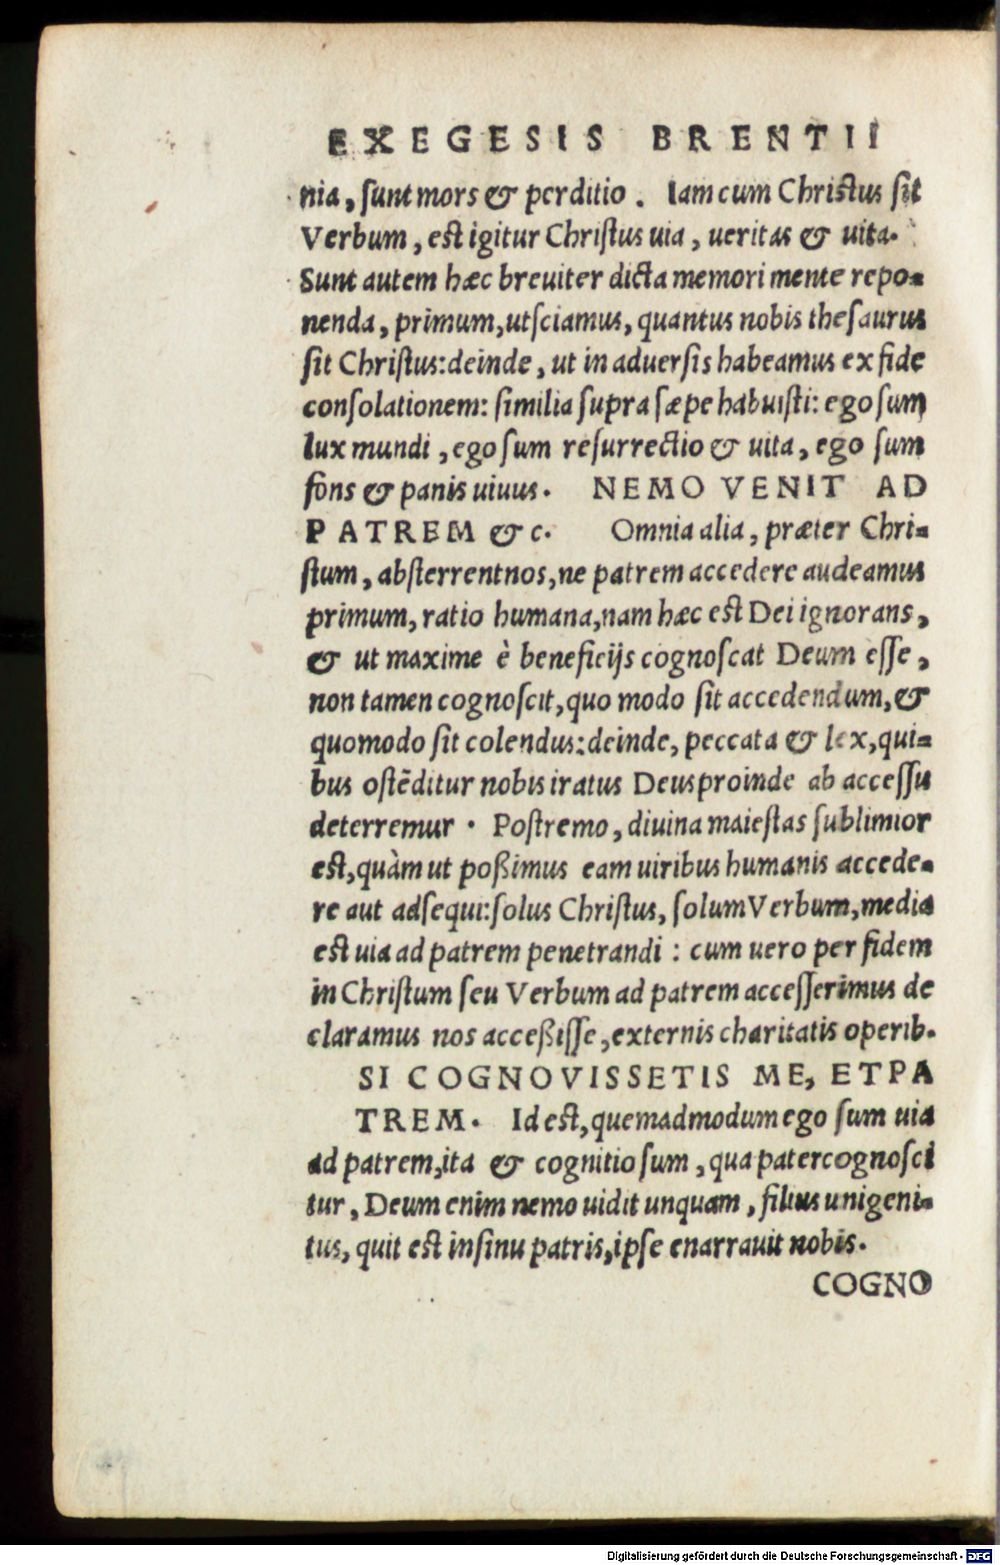 EXEGESIS BRENTII
nia, sunt mors & perditio. Iam cum Christus sit
Verbum, est igitur Christus uia, ueritas & uita.
Sunt autem hæc breuiter dicta memori mente repo-
nenda, primum, ut sciamus, quantus nobis thesaurus
sit Christus: deinde, ut in aduersis habeamus ex fide
consolationem: similia supra sæpe habuisti: ego sum
lux mundi, ego sum resurrectio & uita, ego sum
fons & panis uiuus. NEMO VENIT AD
PATREM &c. Omnia alia, præter Chri-
stum, absterrent nos, ne patrem accedere audeamus
primum, ratio humana, nam hæc est Dei ignorans,
& ut maxime è beneficijs cognoscat Deum esse,
non tamen cognoscit, quo modo sit accedendum, &
quomodo sit colendus: deinde, peccata & lex, qui-
bus ostēditur nobis iratus Deus proinde ab accessu
deterremur. Postremo, diuina maiestas sublimior
est, quàm ut poßimus eam uiribus humanis accede-
re aut adsequi: solus Christus, solum Verbum, media
est uia ad patrem penetrandi: cum uero per fidem
in Christum seu Verbum ad patrem accesserimus de
claramus nos acceßisse, externis charitatis operib.
SI COGNOVISSETIS ME, ET PA
TREM. Id est, quemadmodum ego sum uia
ad patrem, ita & cognitio sum, qua pater cognosci
tur, Deum enim nemo uidit unquam, filius unigeni-
tus, quit est in sinu patris, ipse enarrauit nobis.
COGNO
Digitalisierung gefördert durch die Deutsche Forschungsgemeinschaft - DFG